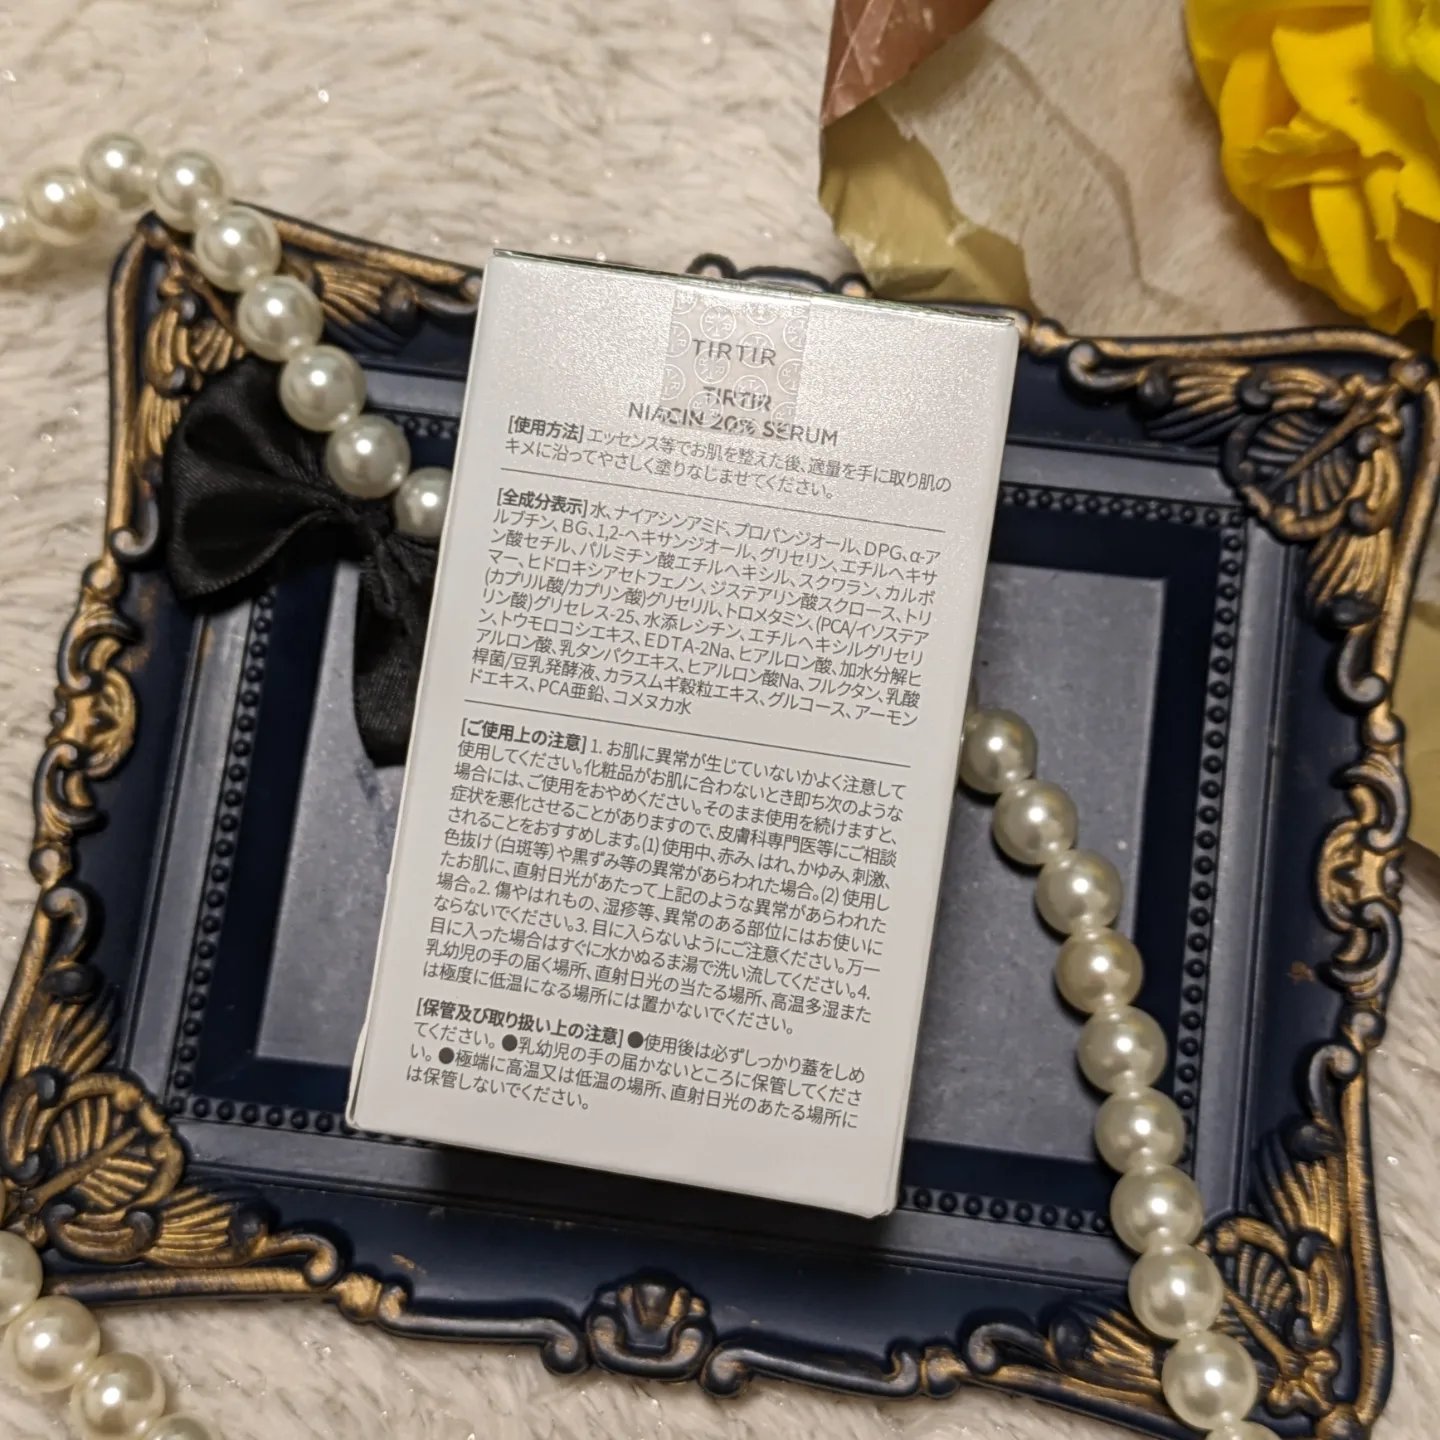 TIRTIR
TIRTIR
NIACIN 20% SERUM
[使用方法] エッセンス等でお肌を整えた後、適量を手に取り肌の
キメに沿ってやさしく塗りなじませてください。
[全成分表示] 水、ナイアシンアミド、プロパンジオール、DPG、α-ア
ルブチン、BG、1,2-ヘキサンジオール、グリセリン、エチルヘキサ
ン酸セチル、パルミチン酸エチルヘキシル、スクワラン、カルボ
マー、ヒドロキシアセトフェノン、ジステアリン酸スクロース、トリ
(カプリル酸/カプリン酸)グリセリル、トロメタミン、(PCA/イソステア
リン酸)グリセレス-25、水添レシチン、エチルヘキシルグリセリ
ン、トウモロコシエキス、EDTA-2Na、ヒアルロン酸、加水分解ヒ
アルロン酸、乳タンパクエキス、ヒアルロン酸Na、フルクタン、乳酸
桿菌/豆乳発酵液、カラスムギ穀粒エキス、グルコース、アーモン
ドエキス、PCA亜鉛、コメヌカ水
[ご使用上の注意] 1. お肌に異常が生じていないかよく注意して
使用してください。化粧品がお肌に合わないとき即ち次のような
場合には、ご使用をおやめください。そのまま使用を続けますと、
症状を悪化させることがありますので、皮膚科専門医等にご相談
されることをおすすめします。(1) 使用中、赤み、はれ、かゆみ、刺激、
色抜け (白斑等) や黒ずみ等の異常があらわれた場合。(2) 使用し
たお肌に、直射日光があたって上記のような異常があらわれた
場合。2. 傷やはれもの、湿疹等、異常のある部位にはお使いに
ならないでください。3. 目に入らないようにご注意ください。万一
目に入った場合はすぐに水かぬるま湯で洗い流してください。4.
乳幼児の手の届く場所、直射日光の当たる場所、高温多湿また
は極度に低温になる場所には置かないでください。
[保管及び取り扱い上の注意] ●使用後は必ずしっかり蓋をしめ
てください。 ●乳幼児の手の届かないところに保管してくださ
い。 ●極端に高温又は低温の場所、直射日光のあたる場所に
は保管しないでください。